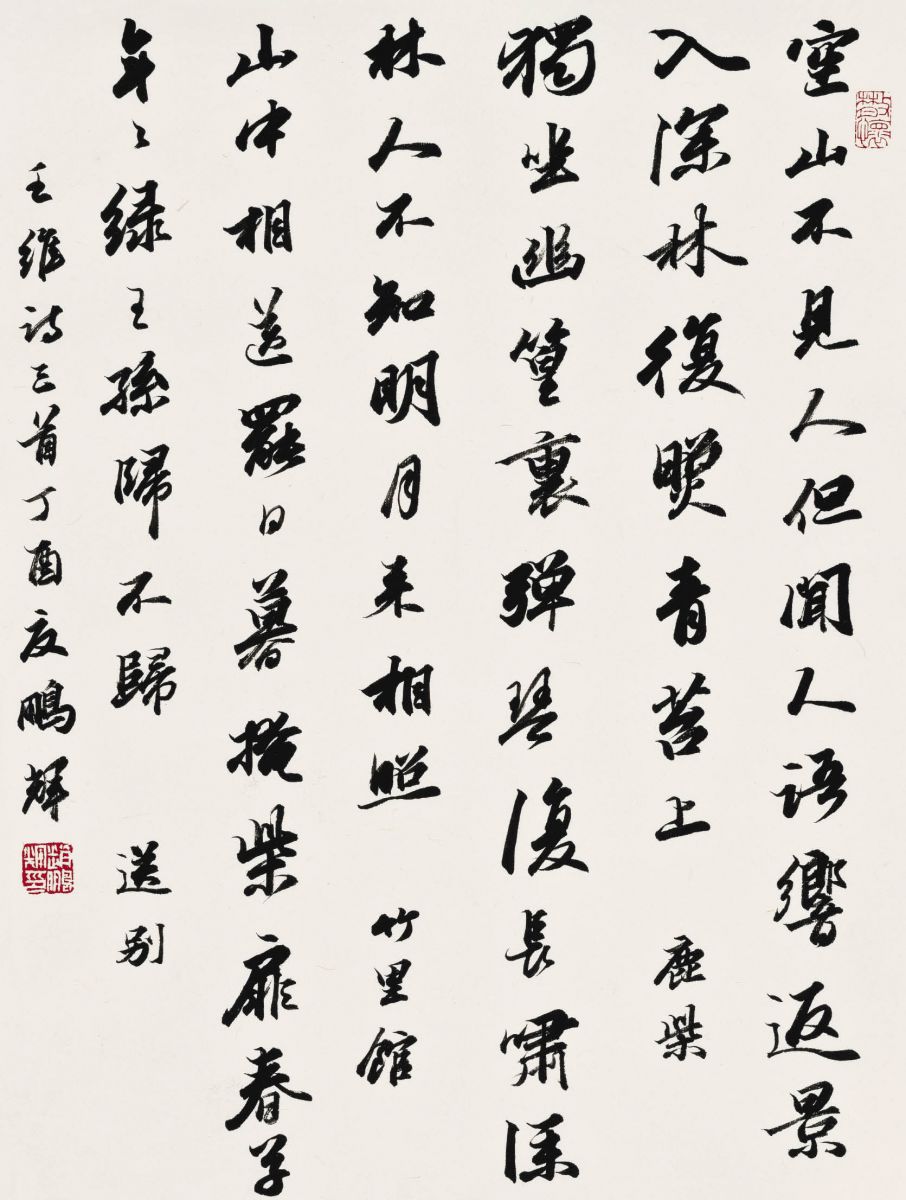 空山不見人但聞人語響返景
入深林復照青苔上 鹿柴
獨坐幽篁裏彈琴復長嘯深
林人不知明月来相照 竹里館
山中相送罷日暮掩柴扉春草
年〻緑王孫歸不歸 送别
王維詩三首丁酉夏鵬輝